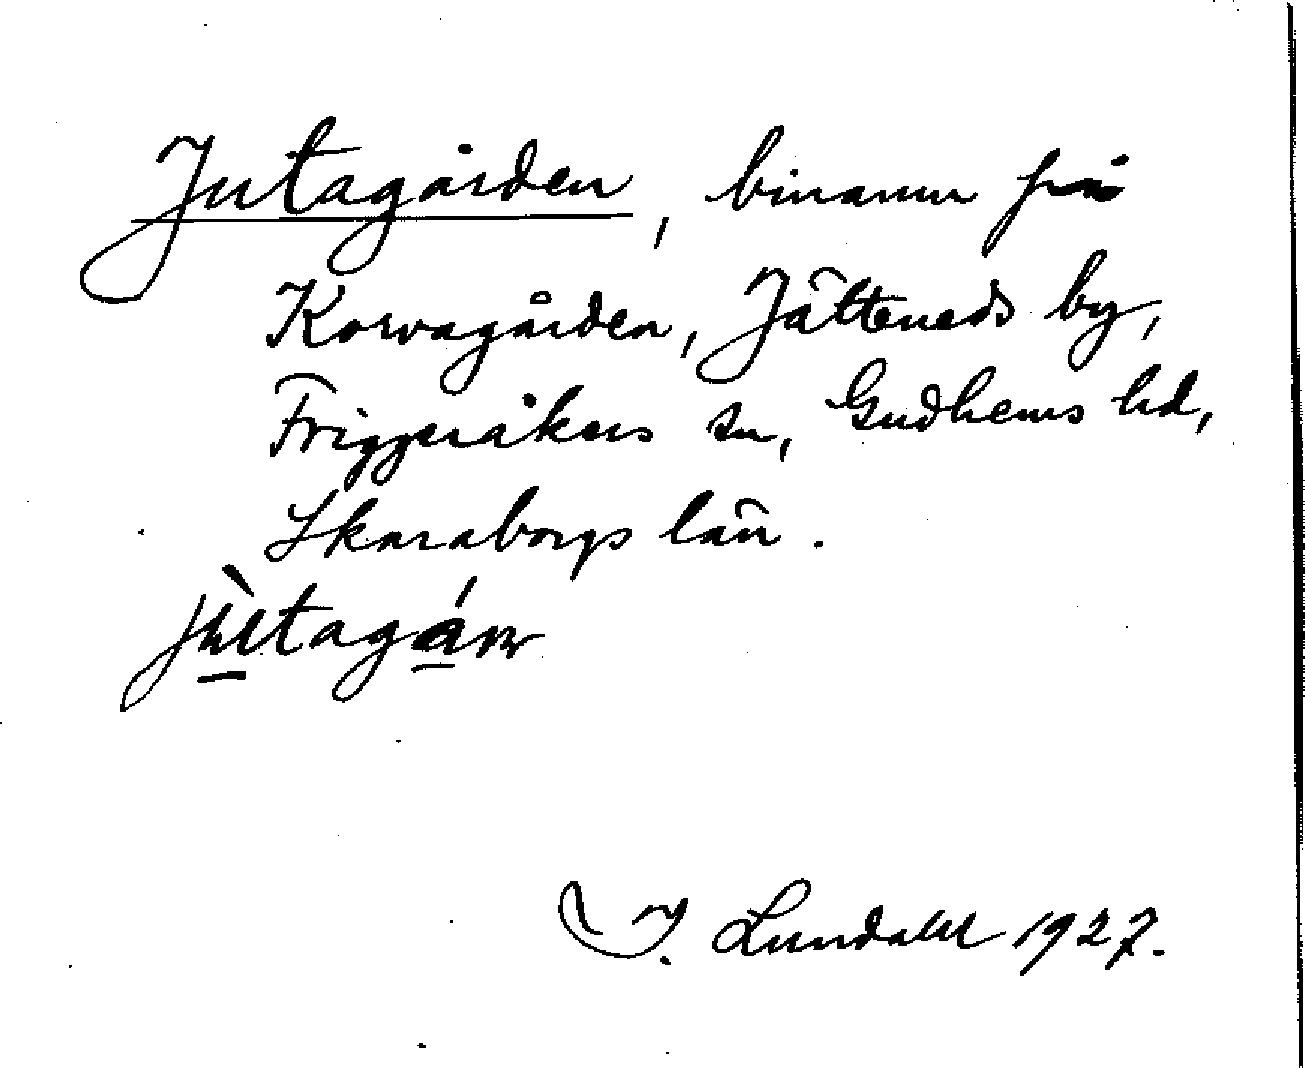 Jutagården, binamn på
Korvagården, Jätteneds by,
Friggeråkers sn, Gudhems hd,
Skaraborgs län.
jùtagár
I. Lundahl 1927.